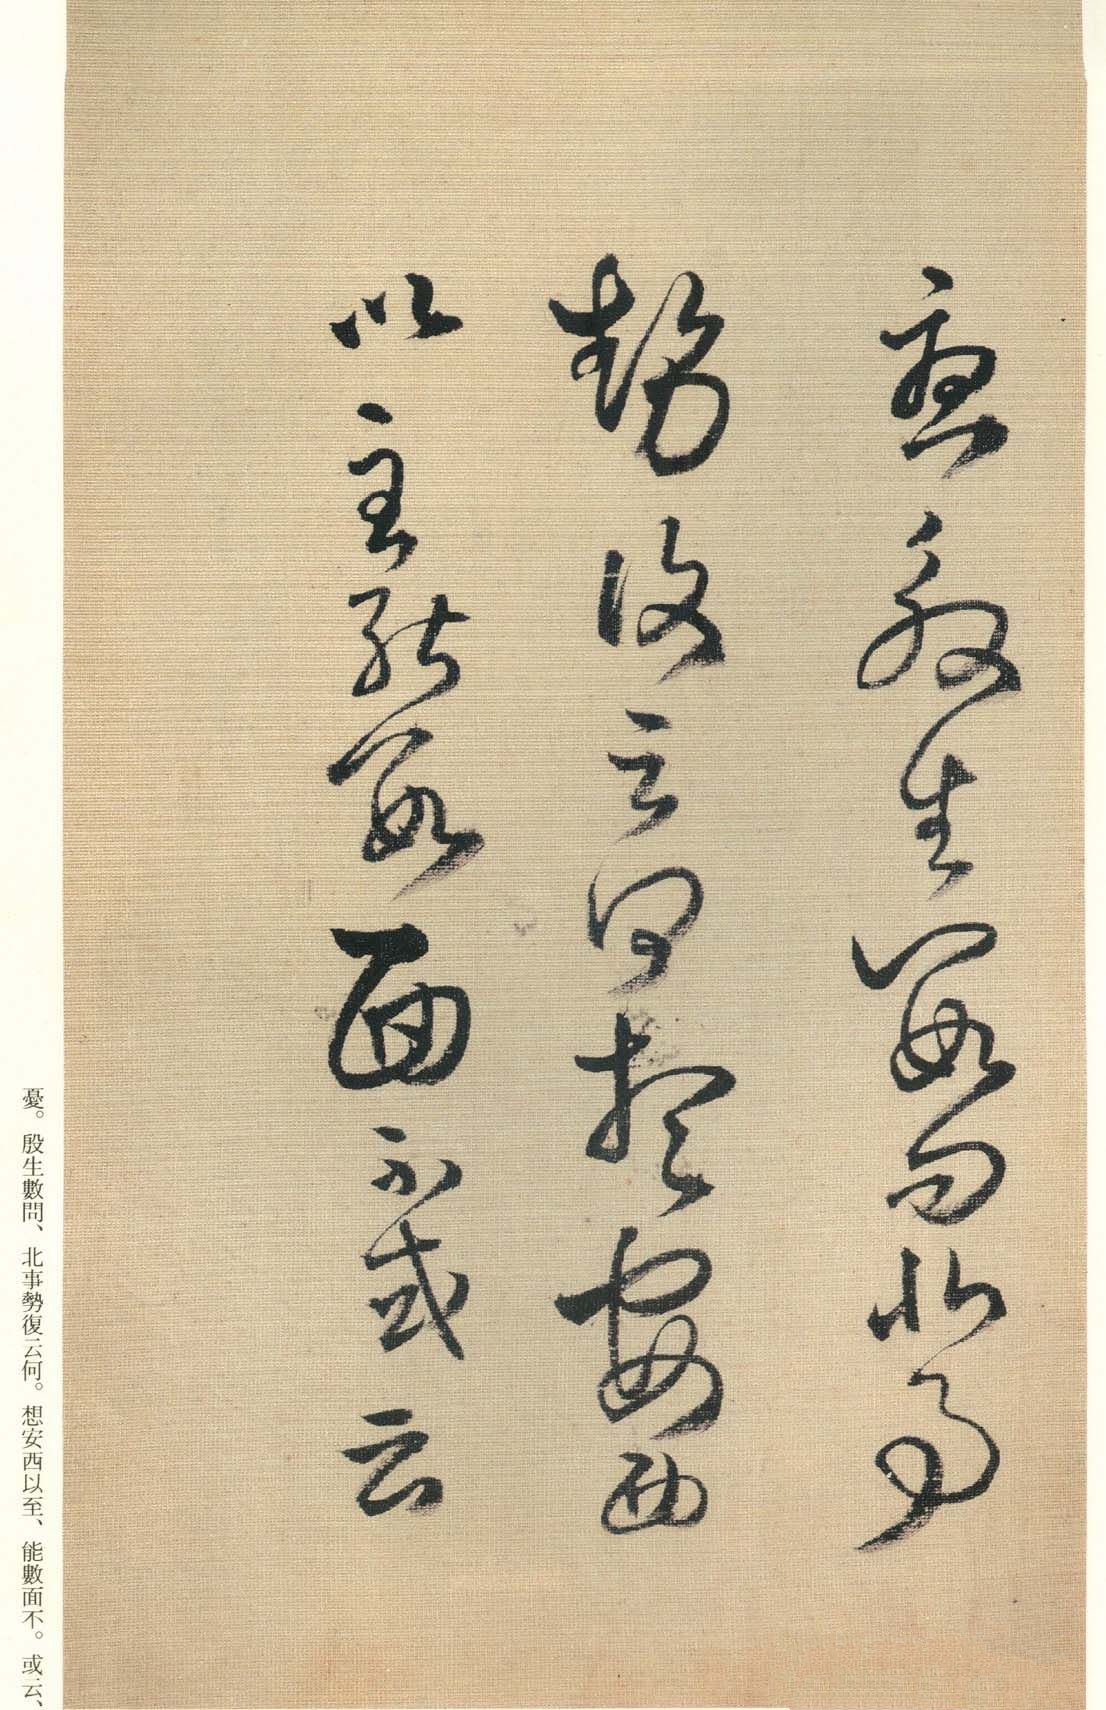 憂殷生數問北事
勢復云何想安西
以至能數面不或云
憂。殷生數問、北事勢復云何。想安西以至、能數面不。或云、